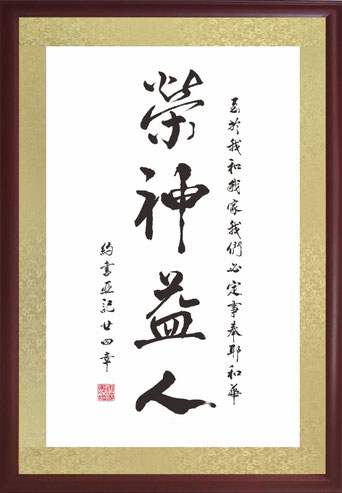 至於我和我家我們必定事奉耶和華
榮神益人
約書亞記廿四章